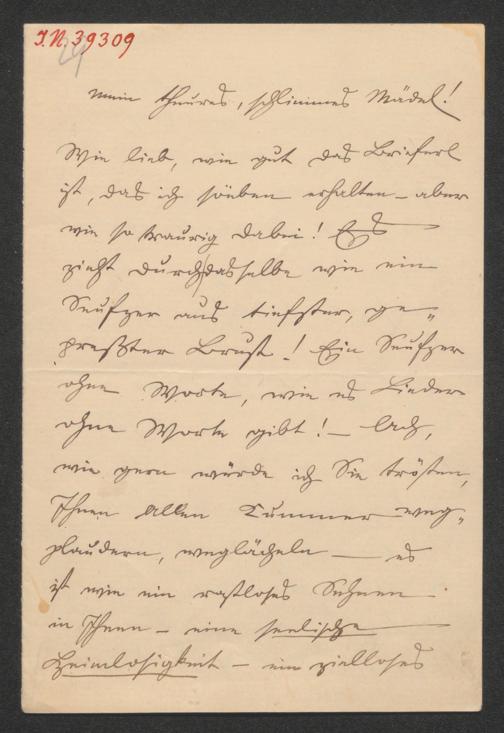 I.N. 39309
24
Mein theures, schlimmes Mädel!
Wie lieb, wie gut das Brieferl
ist, das ich soeben erhalten – aber
wie so traurig dabei! Es
zieht durch dasselbe wie ein
Seufzer aus tiefster, ge-
preßter Brust! Ein Seufzer
ohne Worte, wie es Lieder
ohne Worte gibt! – Ach,
wie gern würde ich Sie trösten,
Ihnen allen Kummer weg-
plaudern, weglächeln – es
ist wie ein rastloses Sehnen
in Ihnen – eine seelische
Heimlosigkeit – ein zielloses